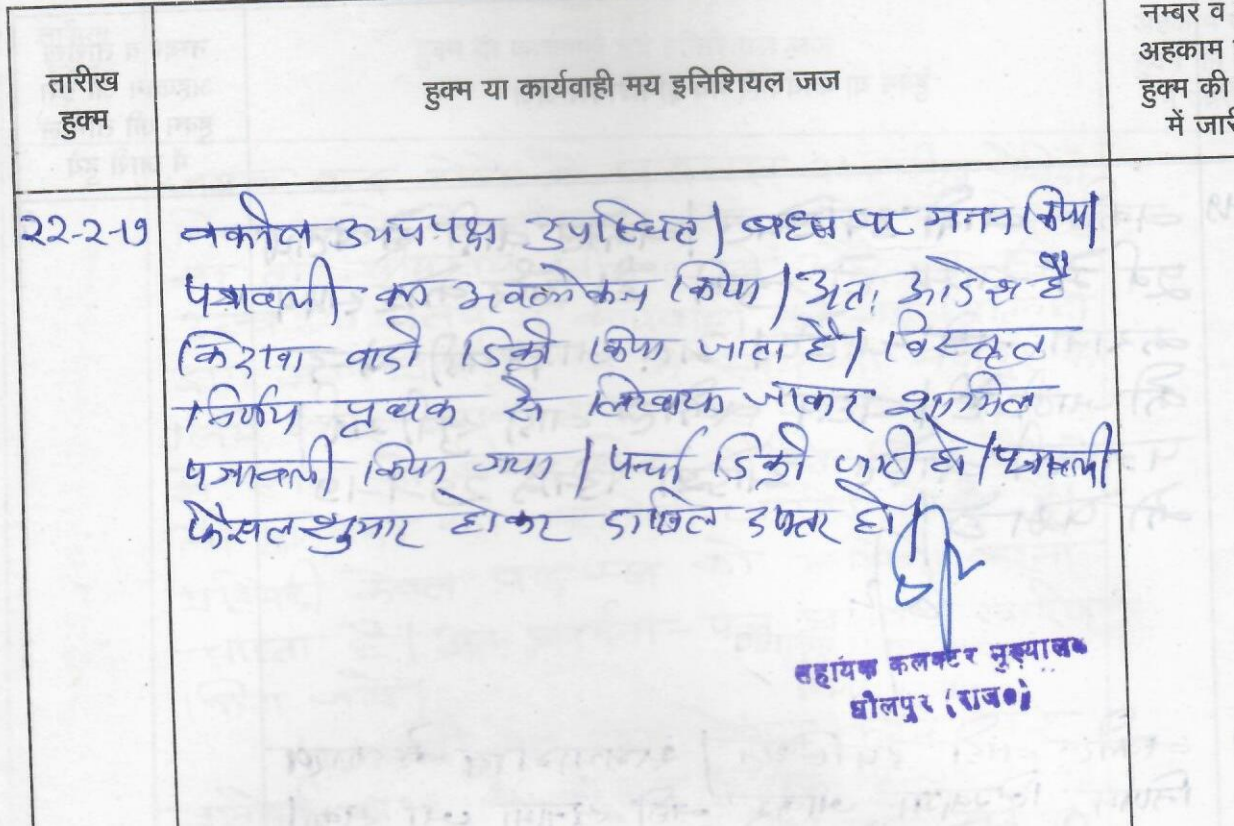 तारीख
हुक्म
हुक्म या कार्यवाही मय इनिशियल जज
नम्बर व
अहकाम
हुक्म की
में जारी
22-2-19 वकील उभयपक्ष उपस्थित। बहस पर मनन किया।
पत्रावली का अवलोकन किया। अतः आदेश है
कि दावा वादी डिक्री किया जाता है। विस्तृत
निर्णय पृथक से लिखवाया जाकर शामिल
पत्रावली किया गया। पर्चा डिक्री जारी हो। पत्रावली
फैसल शुमार होकर दाखिल दफ्तर हो।
सहायक कलक्टर मुख्यालय
धौलपुर (राज०)